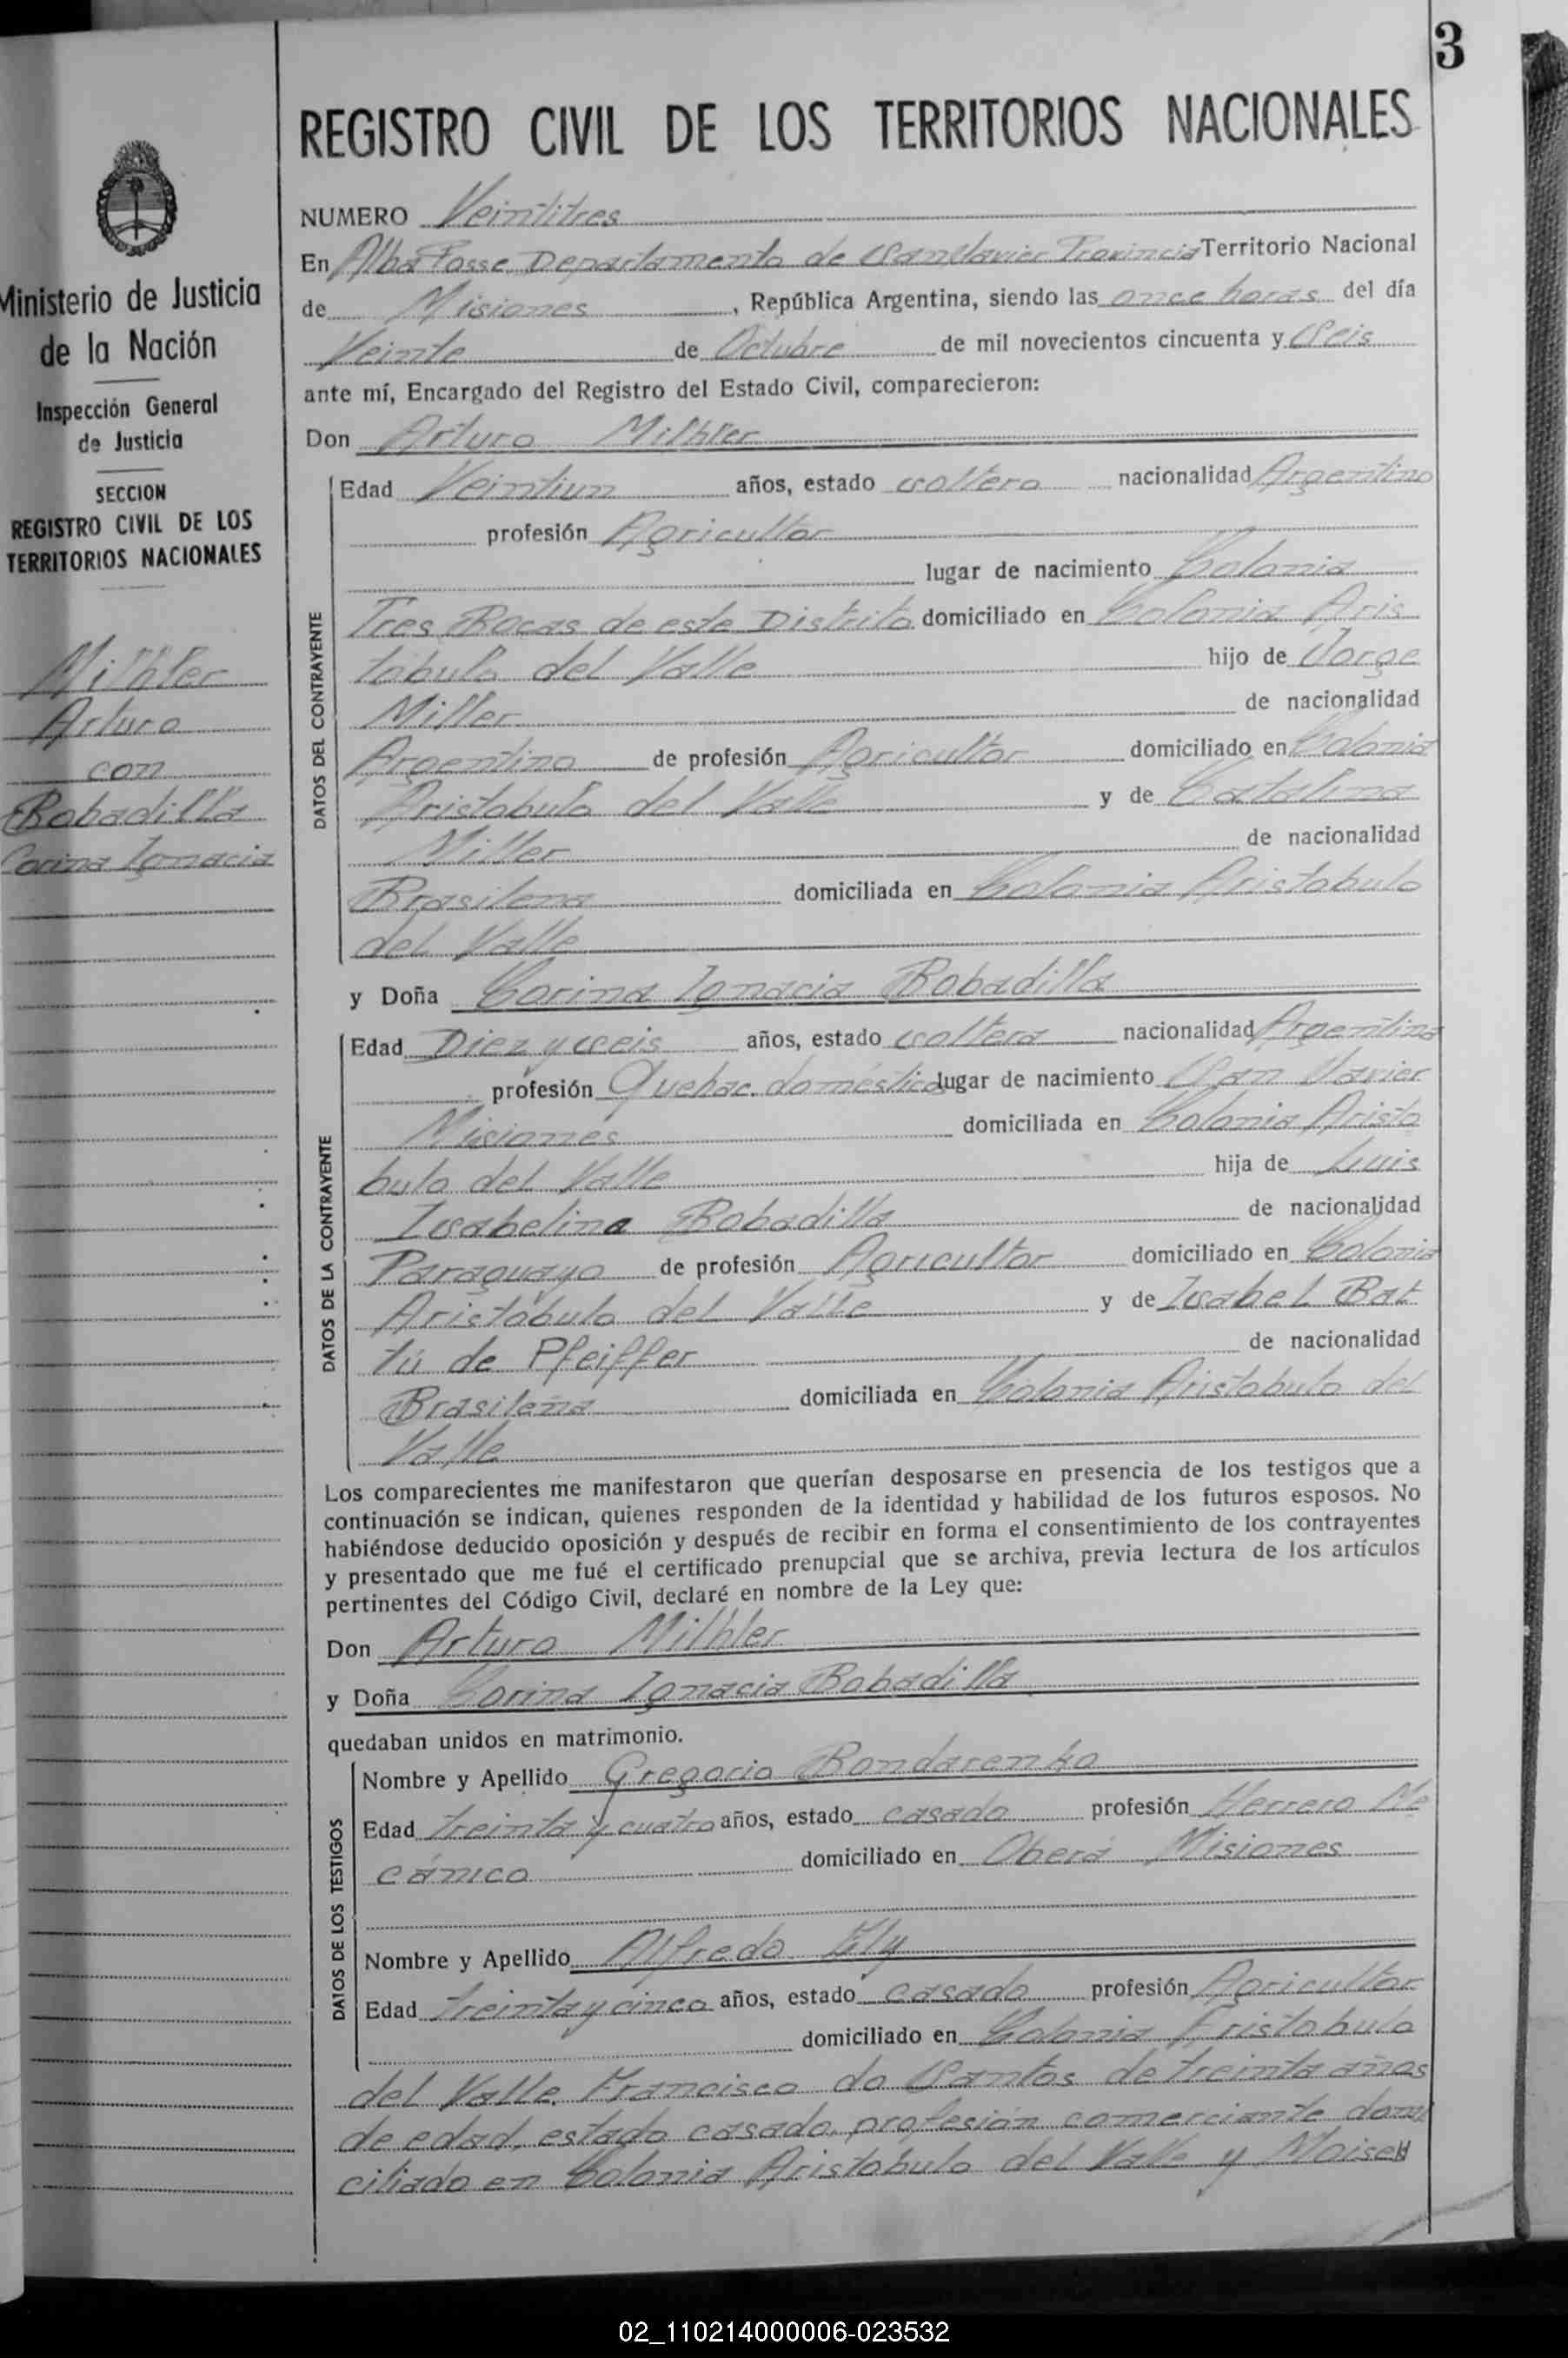 3
REGISTRO CIVIL DE LOS TERRITORIOS NACIONALES
NUMERO Veintitres
En Alba Posse Departamento de San Javier Provincia Territorio Nacional
de Misiones, República Argentina, siendo las once horas del día
Veinte de Octubre de mil novecientos cincuenta y Seis
ante mí, Encargado del Registro del Estado Civil, comparecieron:
Don Arturo Milhler
Edad Veintiun años, estado soltero nacionalidad Argentino
profesión Agricultor
lugar de nacimiento Colonia
Tres Bocas de este Distrito domiciliado en Colonia Aris
tobulo del Valle hijo de Jorge
Miller de nacionalidad
Argentino de profesión Agricultor domiciliado en Colonia
Aristobulo del Valle y de Catalina
Miller de nacionalidad
Brasilena domiciliada en Colonia Aristobulo
del Valle
y Doña Corina Ignacia Bobadilla
Edad Diez y seis años, estado soltera nacionalidad Argentina
profesión Quehac. domésticos lugar de nacimiento San Javier
Misiones domiciliada en Colonia Aristo
bulo del Valle hija de Luis
Isabelino Bobadilla de nacionalidad
Paraguayo de profesión Agricultor domiciliado en Colonia
Aristobulo del Valle y de Isabel Bat
tú de Pfeiffer de nacionalidad
Brasileña domiciliada en Colonia Aristobulo del
Valle
Los comparecientes me manifestaron que querían desposarse en presencia de los testigos que a
continuación se indican, quienes responden de la identidad y habilidad de los futuros esposos. No
habiéndose deducido oposición y después de recibir en forma el consentimiento de los contrayentes
y presentado que me fué el certificado prenupcial que se archiva, previa lectura de los artículos
pertinentes del Código Civil, declaré en nombre de la Ley que:
Don Arturo Milhler
y Doña Corina Ignacia Bobadilla
quedaban unidos en matrimonio.
Nombre y Apellido Gregorio Bondarenko
Edad treinta y cuatro años, estado casado profesión Herrero Me
cánico domiciliado en Oberá Misiones
Nombre y Apellido Alfredo Ely
Edad treinta y cinco años, estado casado profesión Agricultor
domiciliado en Colonia Aristobulo
del Valle. Francisco do Santos de treinta años
de edad, estado casado, profesión comerciante domi
ciliado en Colonia Aristobulo del Valle y Moises
DATOS DEL CONTRAYENTE
DATOS DE LA CONTRAYENTE
DATOS DE LOS TESTIGOS
Ministerio de Justicia
de la Nación
Inspección General
de Justicia
SECCION
REGISTRO CIVIL DE LOS
TERRITORIOS NACIONALES
Milhler
Arturo
con
Bobadilla
Corina Ignacia
02_110214000006-023532